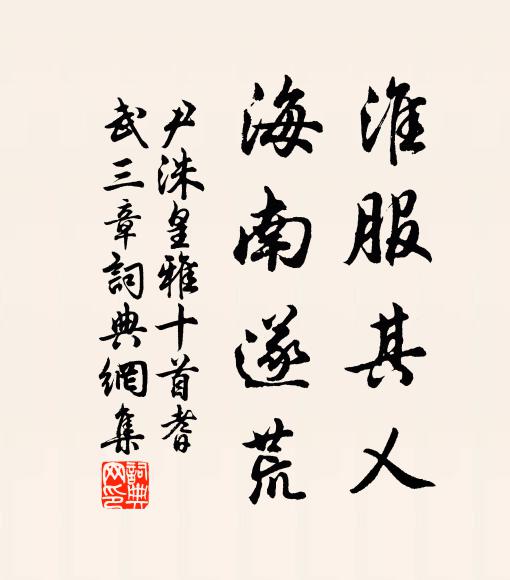 淮服其乂
海南遂荒
尹洙皇雅十首耆
武三章詞典網集
詞典网印